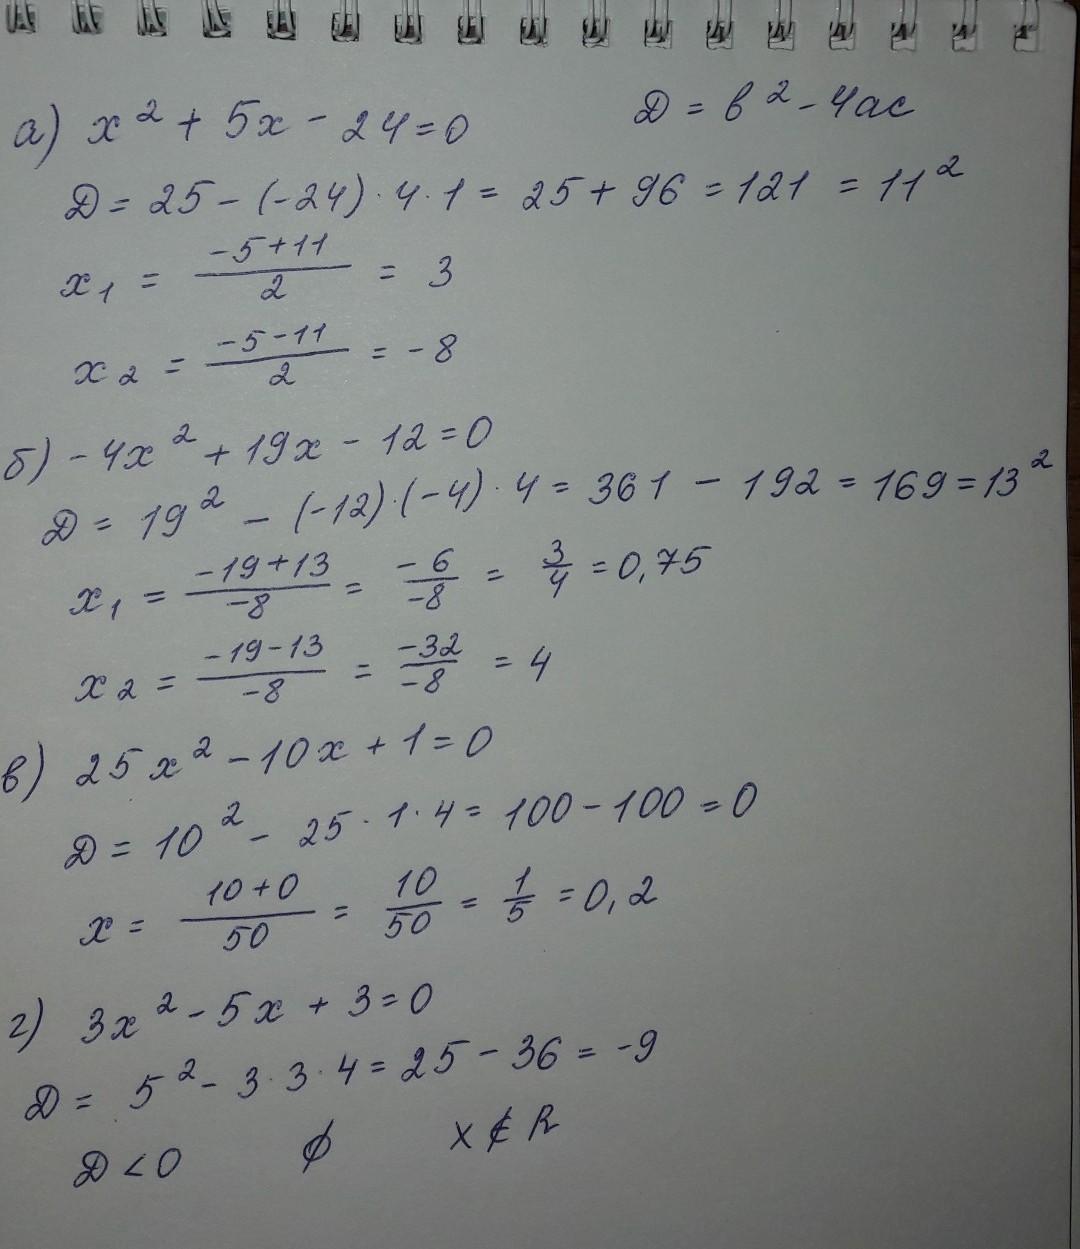 а) x² + 5x - 24 = 0 Д = в² - 4ас
Д = 25 - (-24) · 4 · 1 = 25 + 96 = 121 = 11²
x₁ = (-5+11)/2 = 3
x₂ = (-5-11)/2 = -8
б) -4x² + 19x - 12 = 0
Д = 19² - (-12) · (-4) · 4 = 361 - 192 = 169 = 13²
x₁ = (-19+13)/-8 = -6/-8 = 3/4 = 0,75
x₂ = (-19-13)/-8 = -32/-8 = 4
в) 25x² - 10x + 1 = 0
Д = 10² - 25 · 1 · 4 = 100 - 100 = 0
x = (10+0)/50 = 10/50 = 1/5 = 0,2
г) 3x² - 5x + 3 = 0
Д = 5² - 3 · 3 · 4 = 25 - 36 = -9
Д < 0 ∅ x ∉ R